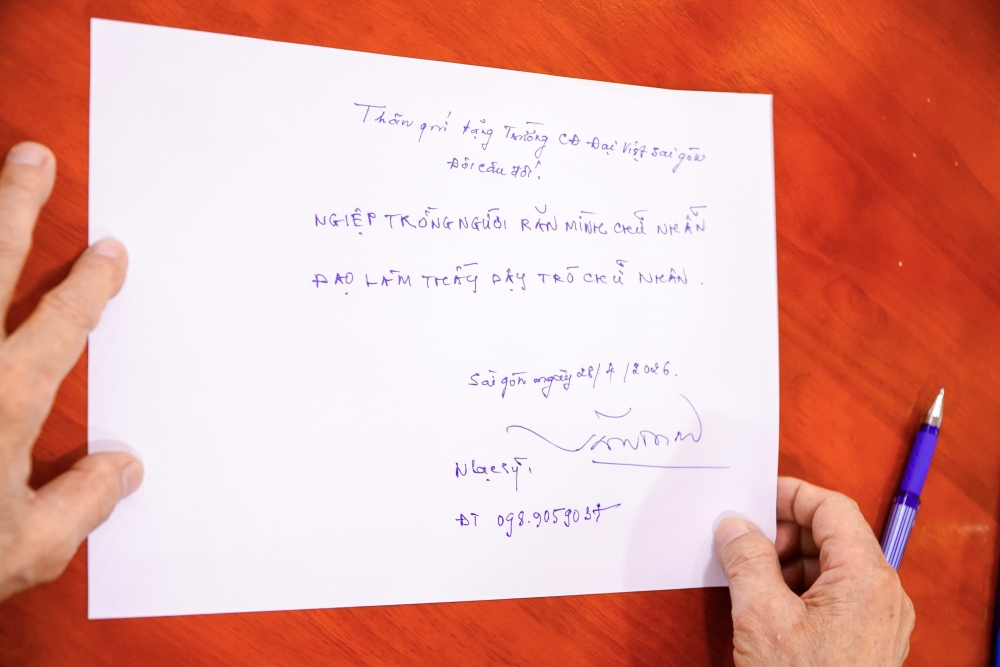 Thân quí tặng Trường CĐ Đại Việt Sài gòn
Đôi câu đối.
NGIỆP TRỒNG NGƯỜI RĂN MÌNH CHỮ NHẪN
ĐẠO LÀM THẦY DẬY TRÒ CHỮ NHÂN.
Sài gòn ngày 28/4/2026.
Nhạc sỹ,
ĐT 098.9059037